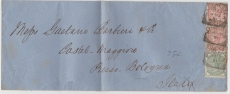 Messrs Gaetano Barbieri & Co.
Castel Maggiore
Presso Bologna
Italia